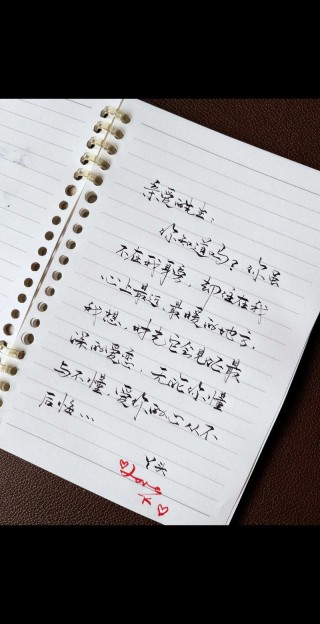 亲爱的先生：
你知道吗？你虽
不在我身旁，却住在我
心上最近、最暖的地方。
我想，时光定会记最
深的爱恋，无论你懂
与不懂，爱你的心从不
后悔…
丫头
Love